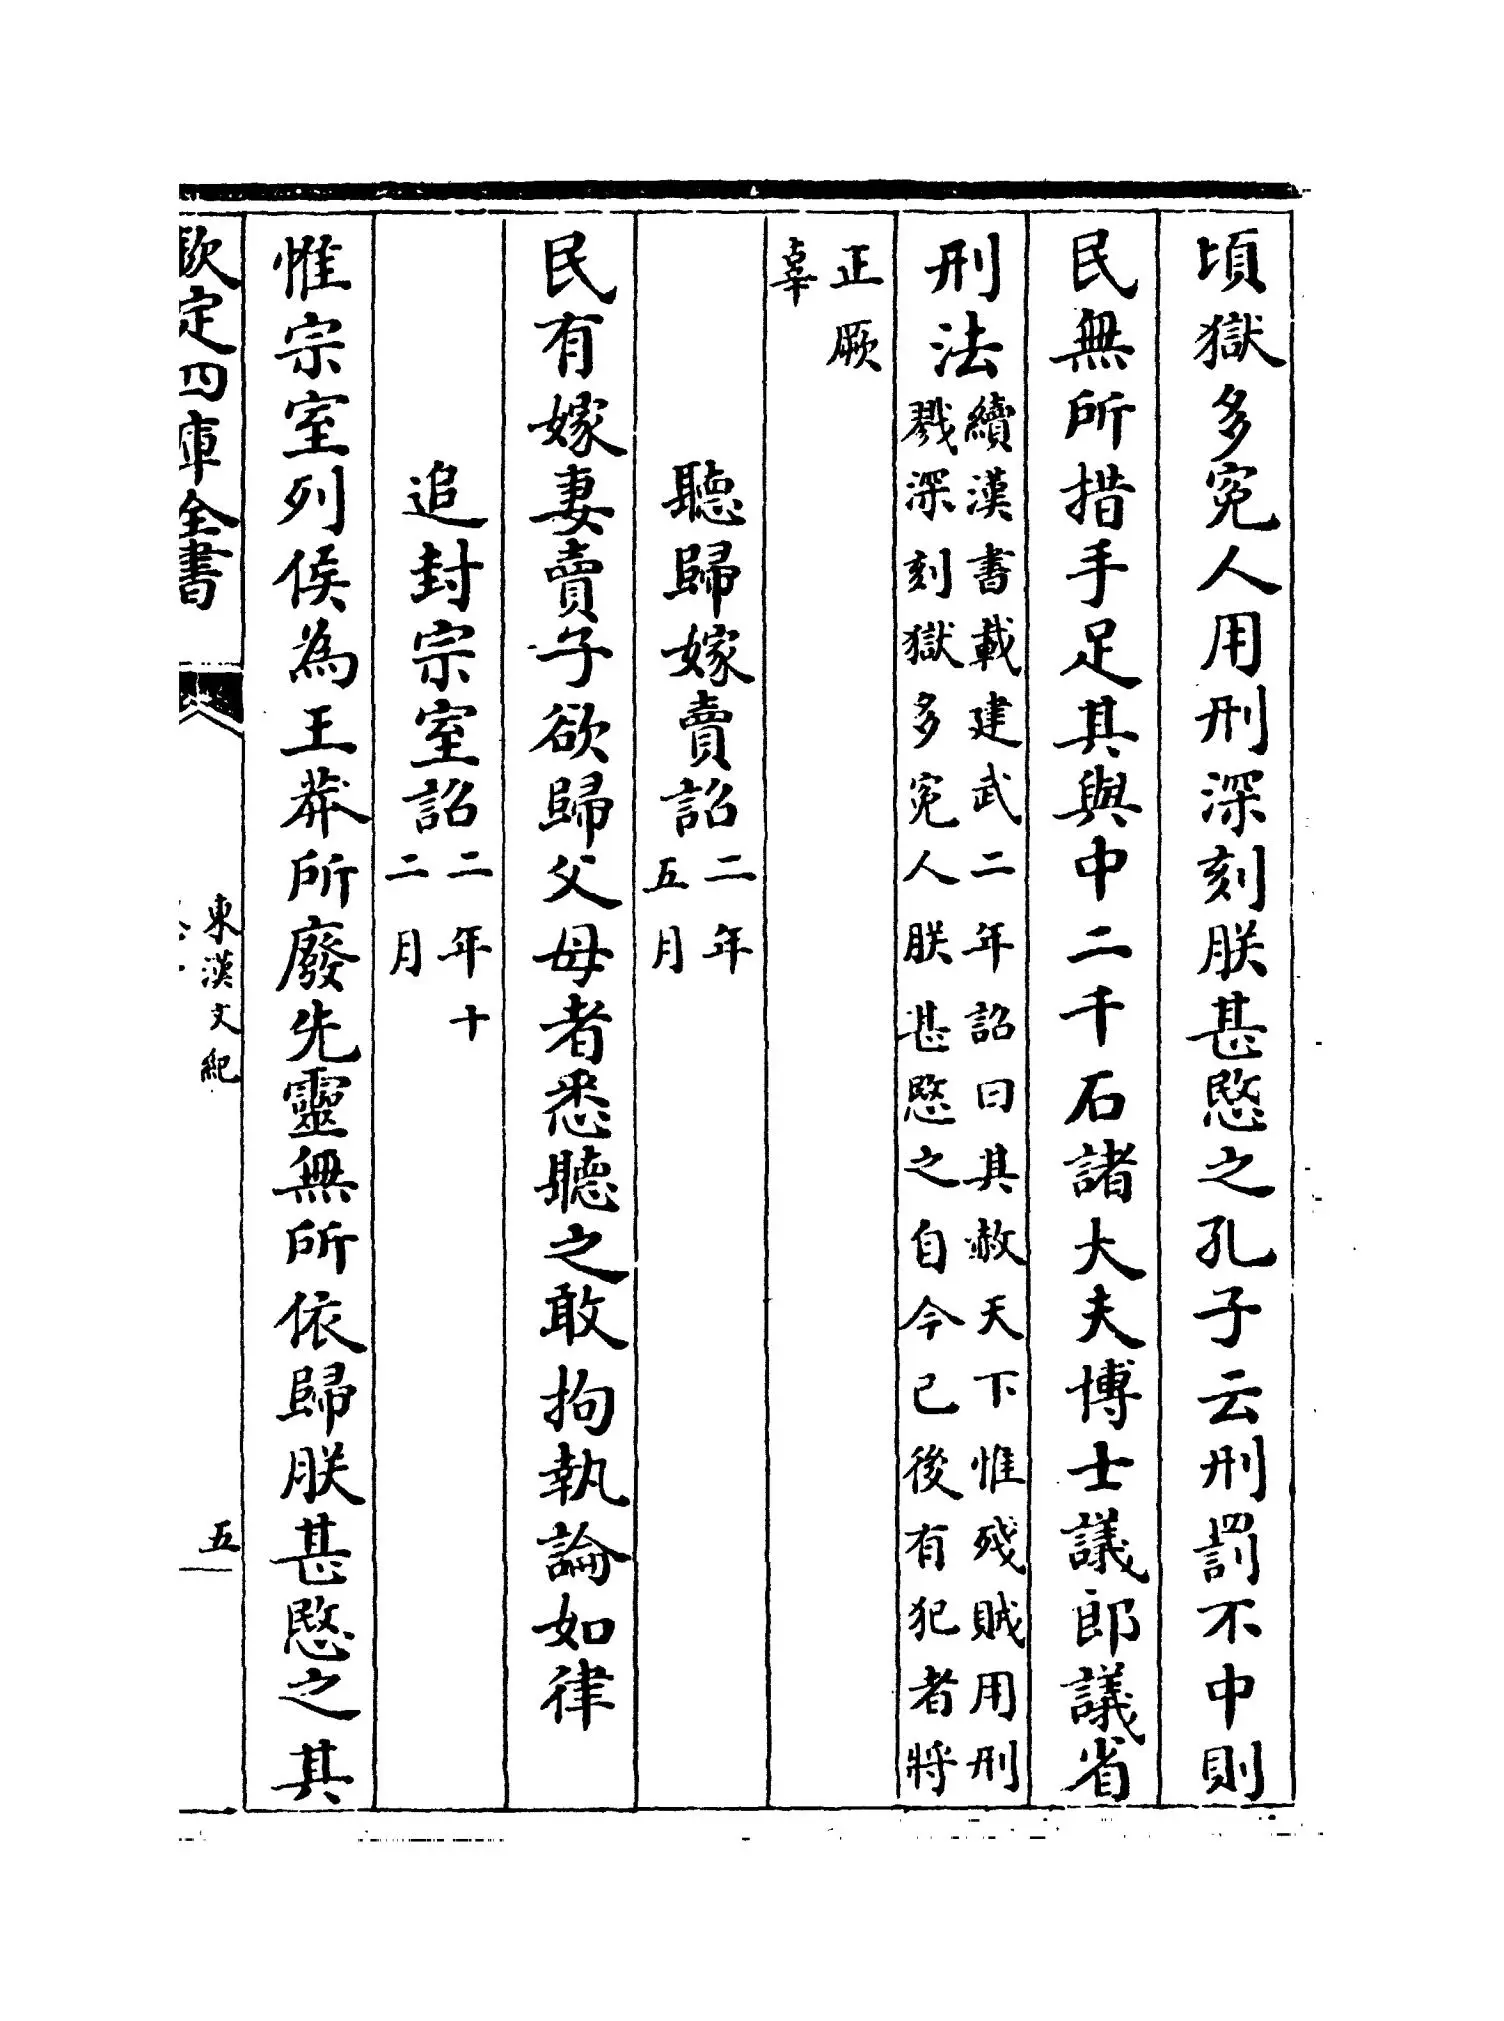 頃獄多寃人用刑深刻朕甚愍之孔子云刑罰不中則
民無所措手足其與中二千石諸大夫博士議郎議省
刑法
續漢書載建武二年詔曰其赦天下惟殘賊用刑
戮深刻獄多寃人朕甚愍之自今已後有犯者將
正厥
辜
聽歸嫁賣詔
二年
五月
民有嫁妻賣子欲歸父母者悉聽之敢拘執論如律
追封宗室詔
二年十
二月
惟宗室列侯為王莽所廢先靈無所依歸朕甚愍之其
欽定四庫全書
東漢文紀
五